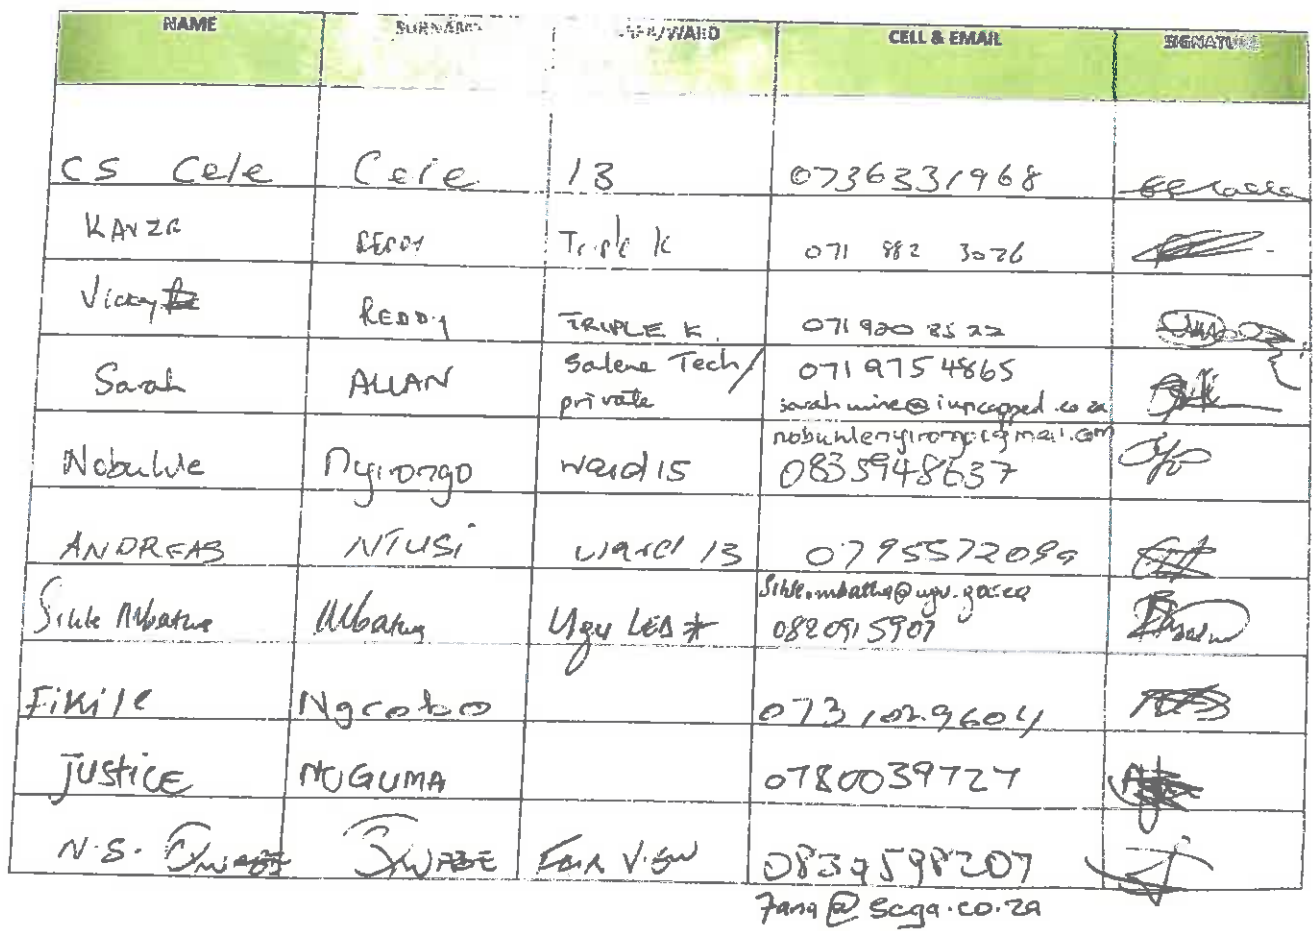 NAME SURNAME /WARD CELL & EMAIL SIGNATURE
CS Cele Cele 13 0736331968
REDDY Triple K 071 982 3026
Vicky REDDY TRIPLE K. 071 920 2522
Sarah ALLAN Salene Tech/ 0719754865
private sarahmine@iuncapped.co.za
nobuhlenyirongo@gmail.com
Nobuhle Nyirongo ward 15 0835948637
ANDREAS NTUSI ward 13 0795572099
Sihle.mbatha@ugu.gov.za
Sihle Mbatha Mbatha Ugu LED 0820915907
Fikile Ngcobo 0731029604
JUSTICE NOGUMA 0780039727
N.S. QWABE QWABE FAIR VIEW 0839598207
fana@scga.co.za